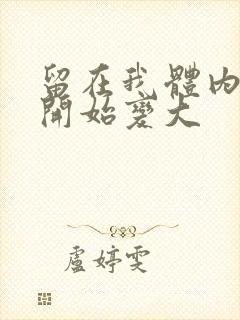 留在我體內
開始變大
盧婷雯